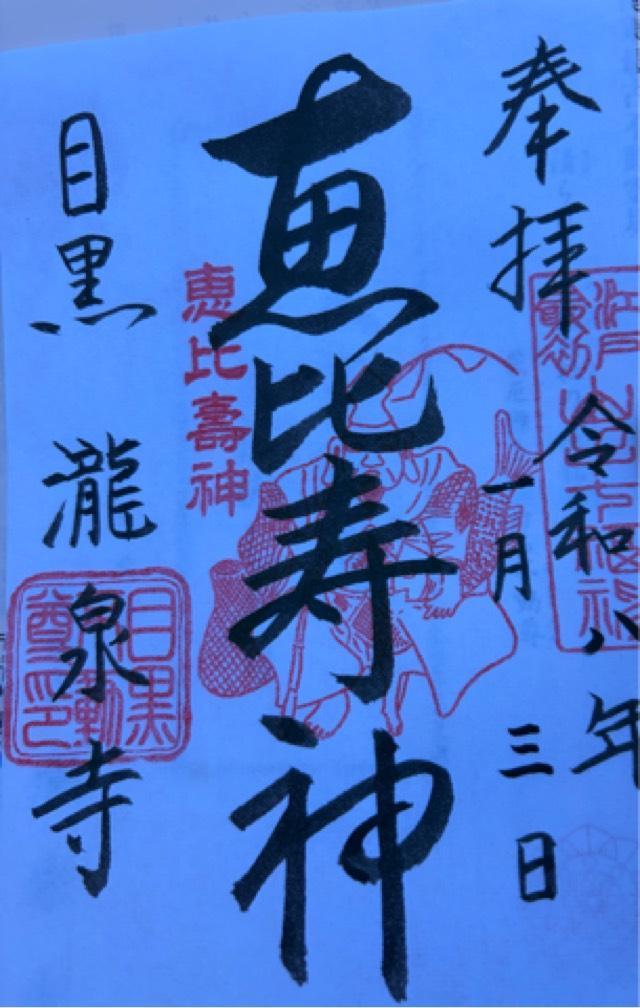 奉拝
令和八年
一月三日
江戸最初
山手七福神
恵比寿神
恵比壽神
目黒 瀧泉寺
目黒
不動
尊印